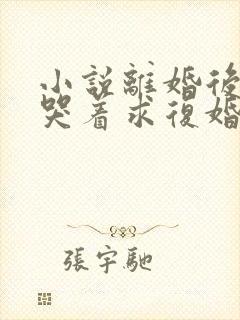 小說離婚後
哭着求復婚
張宇馳